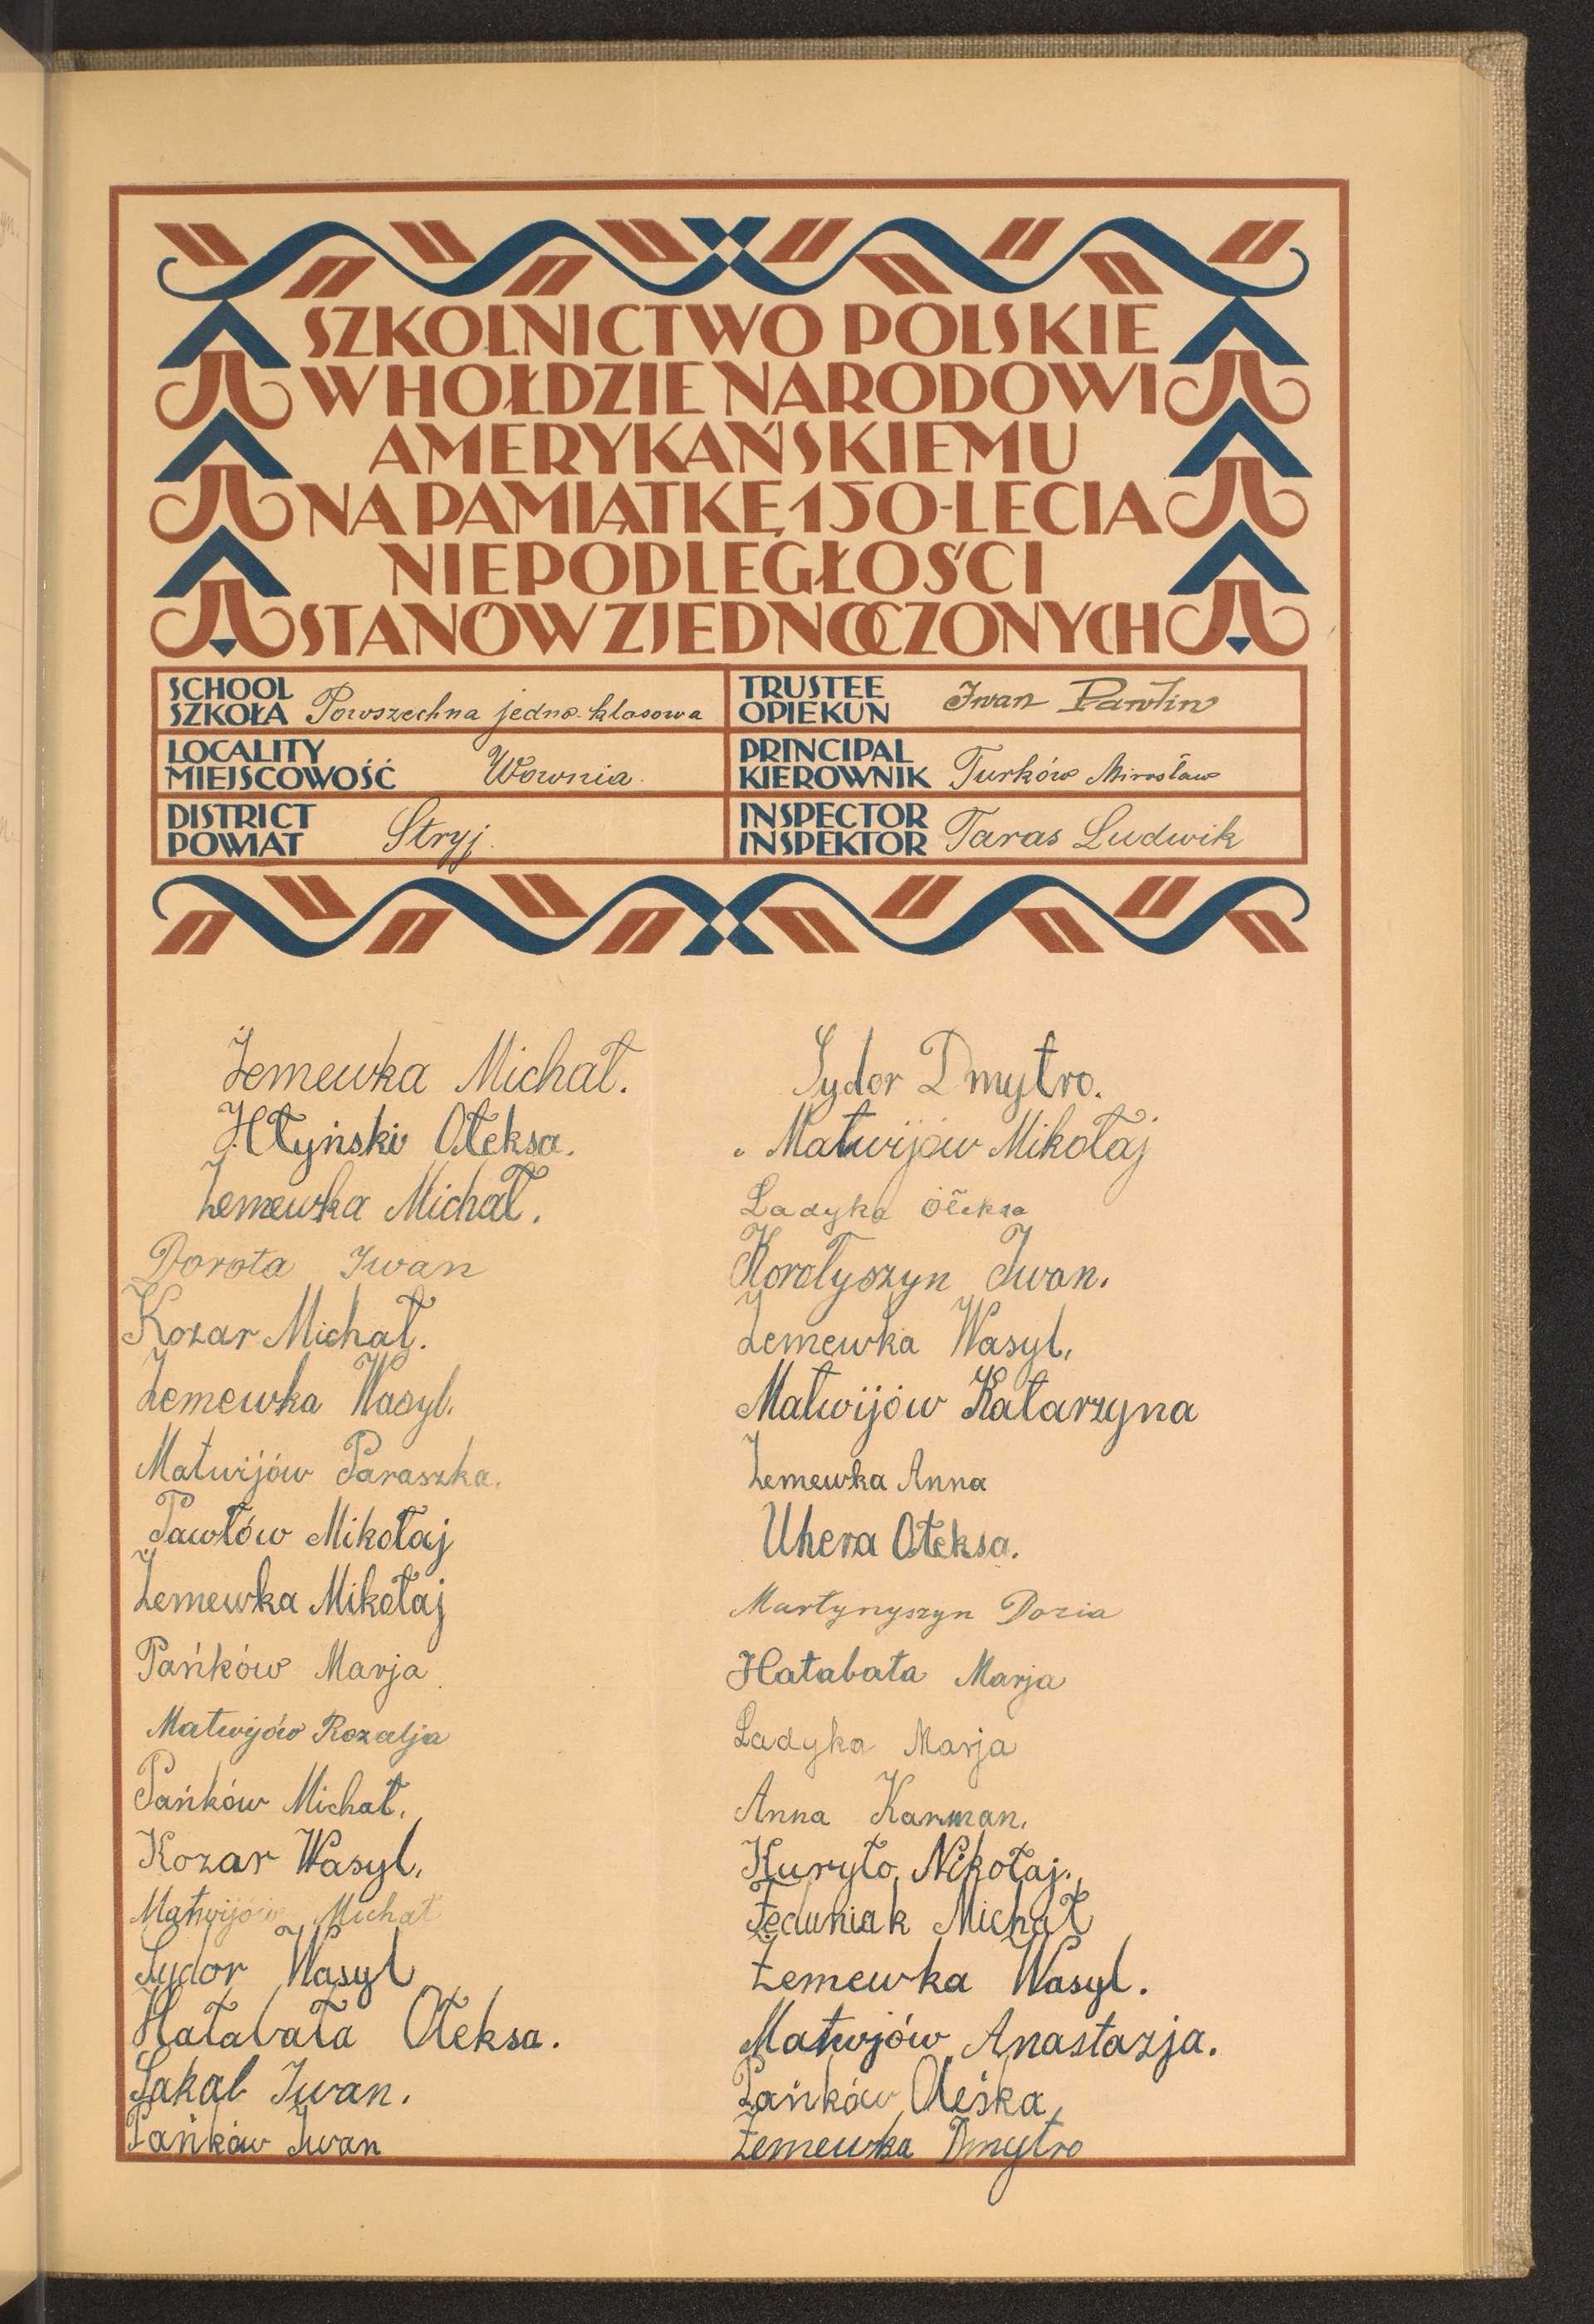 SZKOLNICTWO POLSKIE
W HOŁDZIE NARODOWI
AMERYKAŃSKIEMU
NA PAMIĄTKĘ 150-LECIA
NIEPODLEGŁOŚCI
STANÓW ZJEDNOCZONYCH
SCHOOL
SZKOŁA Powszechna jedno-klasowa
TRUSTEE
OPIEKUN Iwan Pawlin
LOCALITY
MIEJSCOWOŚĆ Wownia
PRINCIPAL
KIEROWNIK Turków Mirosław
DISTRICT
POWIAT Stryj.
INSPECTOR
INSPEKTOR Taras Ludwik
Żemewka Michał.
Hłyński Ołeksa.
Żemewka Michał.
Dorota Iwan
Kozar Michał.
Żemewka Wasyl.
Matwijów Paraszka.
Pawłów Mikołaj
Żemewka Mikołaj
Pańków Marja
Matwijów Rozalja
Pańków Michał.
Kozar Wasyl.
Matwijów Michał
Sydor Wasyl
Hałabała Ołeksa.
Sakal Iwan.
Pańków Iwan
Sydor Dmytro.
Matwijów Mikołaj
Ladyka Ołeksa
Korołyszyn Iwan.
Żemewka Wasyl.
Matwijów Katarzyna
Żemewka Anna
Uhera Ołeksa.
Martynyszyn Dozia
Hałabała Marja
Ladyka Marja
Anna Karman.
Kuryło Nikołaj.
Feduniak Michał
Żemewka Wasyl.
Matwjów Anastazja.
Pańków Oleśka
Żemewka Dmytro